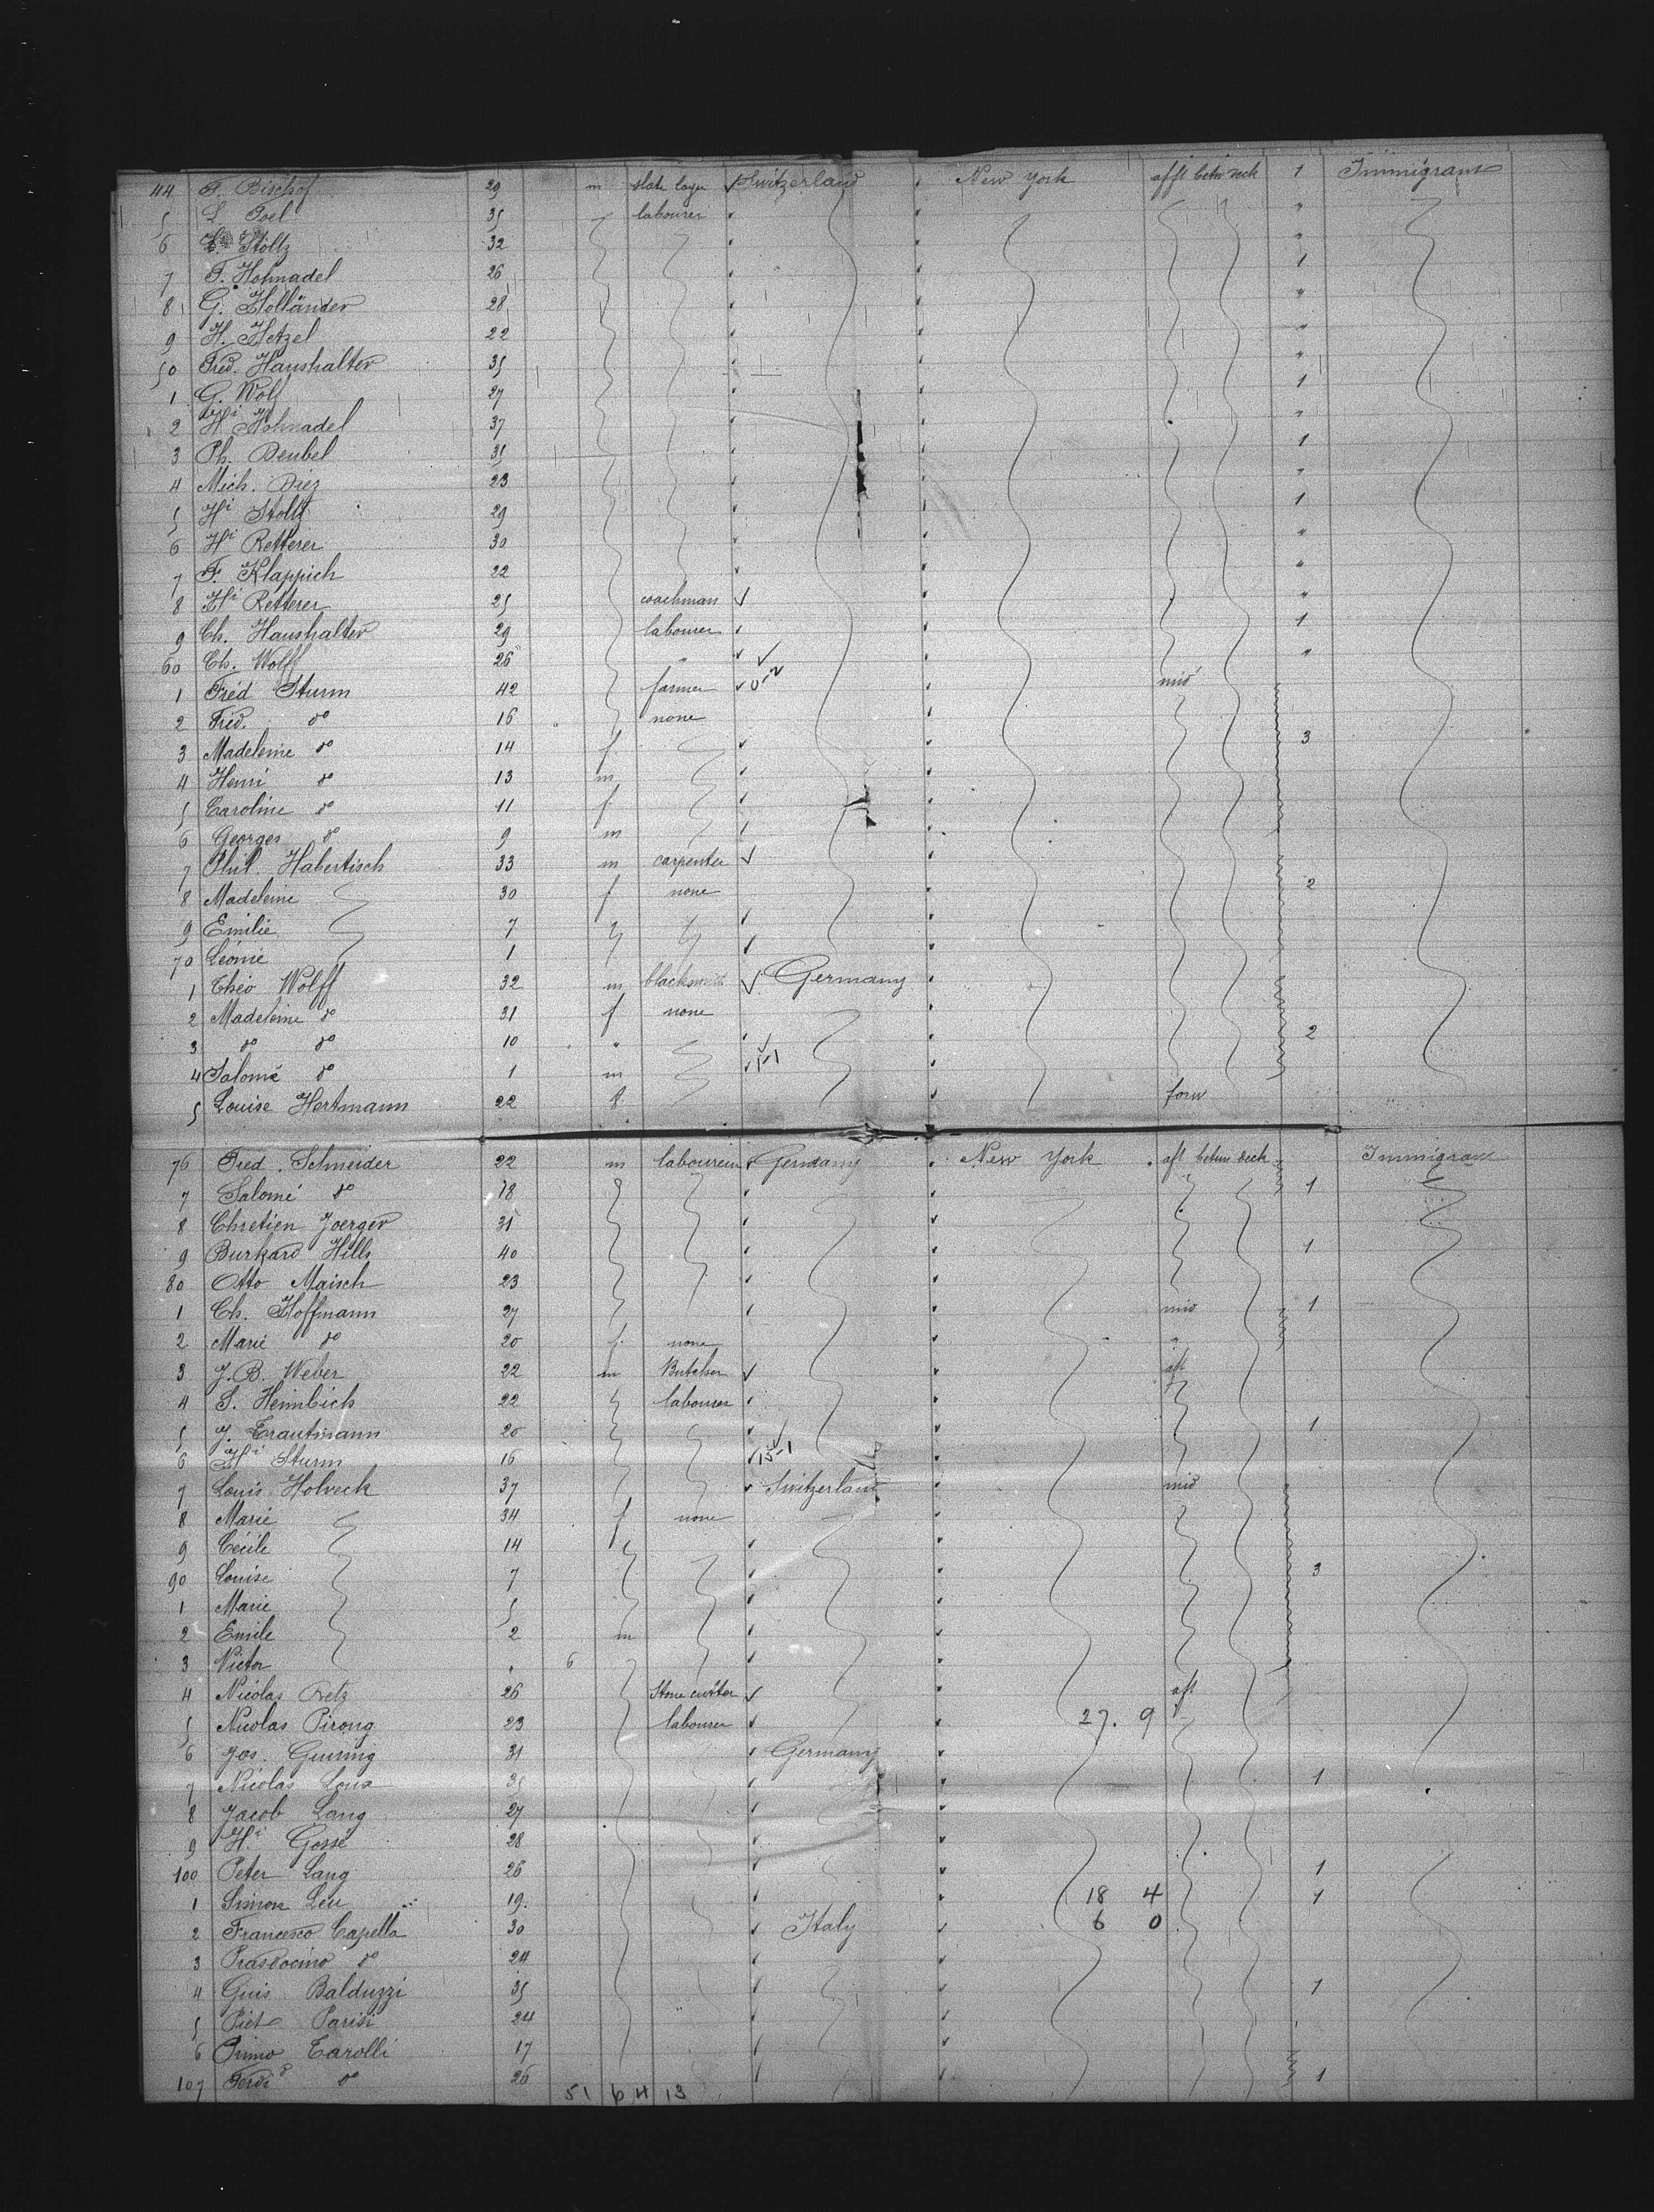 44 F. Bischof 29 m slate layer Switzerland New York aft betw deck 1 Immigrant
5 L. Joel 35 labourer "
6 C. Stoltz 32 "
7 F. Hohnadel 26 1
8 G. Holländer 28 "
9 H. Hetzel 22 "
50 Fred. Haushalter 35 "
1 G. Wolf 27 1
2 Hi Hohnadel 37 "
3 Ph. Deubel 35 1
4 Mich. Diez 23 "
5 Hi Stoltz 29 1
6 Hi Retterer 30 "
7 F. Klappich 22 "
8 Hi Retterer 25 coachman "
9 Ch. Haushalter 29 labourer 1
60 Ch. Wolff 26 " "
1 Fréd Sturm 42 farmer mid
2 Fréd. do 16 none
3 Madeleine do 14 f. 3
4 Henri do 13 m
5 Caroline do 11 f
6 Georges do 9 m
7 Phil. Habertisch 33 m carpenter
8 Madeleine 30 f none 2
9 Emilie 7
70 Léonie 1
1 Théo Wolff 32 m blacksmith Germany
2 Madeleine do 31 f none
3 do do 10 " 2
4 Salomé do 1 m
5 Louise Hertmann 22 f forw
76 Fred. Schneider 22 m labourer Germany New York aft betw deck Immigrant
7 Salomé do 18 1
8 Chretien Joerger 31
9 Burkard Hills 40 1
80 Otto Maisch 23
1 Ch. Hoffmann 27 mid 1
2 Marie do 20 f. none
3 J. B. Weber 22 m Butcher aft
4 S. Heimbich 22 labourer
5 J. Trautmann 20 1
6 Hi Sturm 16
7 Louis Holveck 37 Switzerland mid
8 Marie 34 f none
9 Cécile 14
90 Louise 7 3
1 Marie 5
2 Emile 2 m
3 Victor 6
4 Nicolas Retz 26 Stone cutter aft
5 Nicolas Pirong 23 labourer 27. 9
6 Jos. Guising 31 Germany
7 Nicolas Loux 35 1
8 Jacob Lang 27
9 Hi Gossé 28
100 Peter Lang 26 1
1 Simon Leu 19. 18 4 1
2 Francesco Capella 30 Italy 6 0
3 Prasdocimo do 24
4 Guis. Balduzzi 35 1
5 Piet Parisi 24
6 Primo Tarolli 17
107 Ferdo do 26 1
51 6 4 13